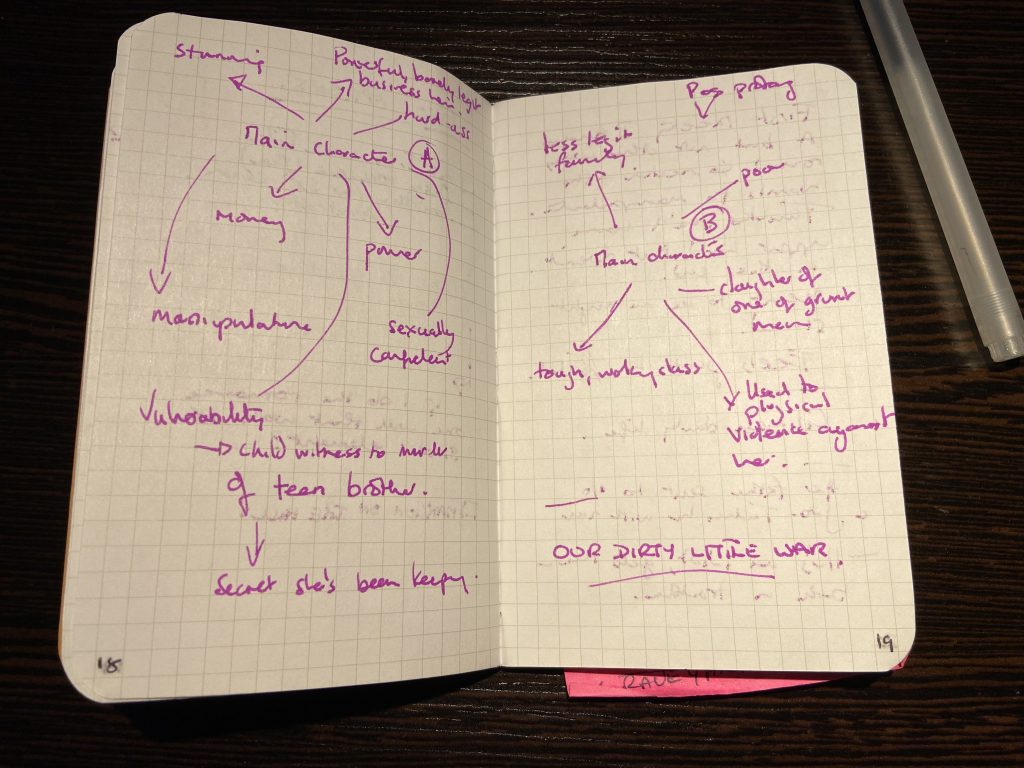 Stunning
Powerful, barely legit
business
hard-ass
Main Character A
Money
power
Manipulative
sexually
competent
Vulnerability
→ child witness to murder
of teen brother.
Secret she's been keeping.
18
less legit
family
poor
B
Main character
daughter of
one of grunt
men.
tough, working class
Used to
physical
violence against
her.
OUR DIRTY LITTLE WAR
19